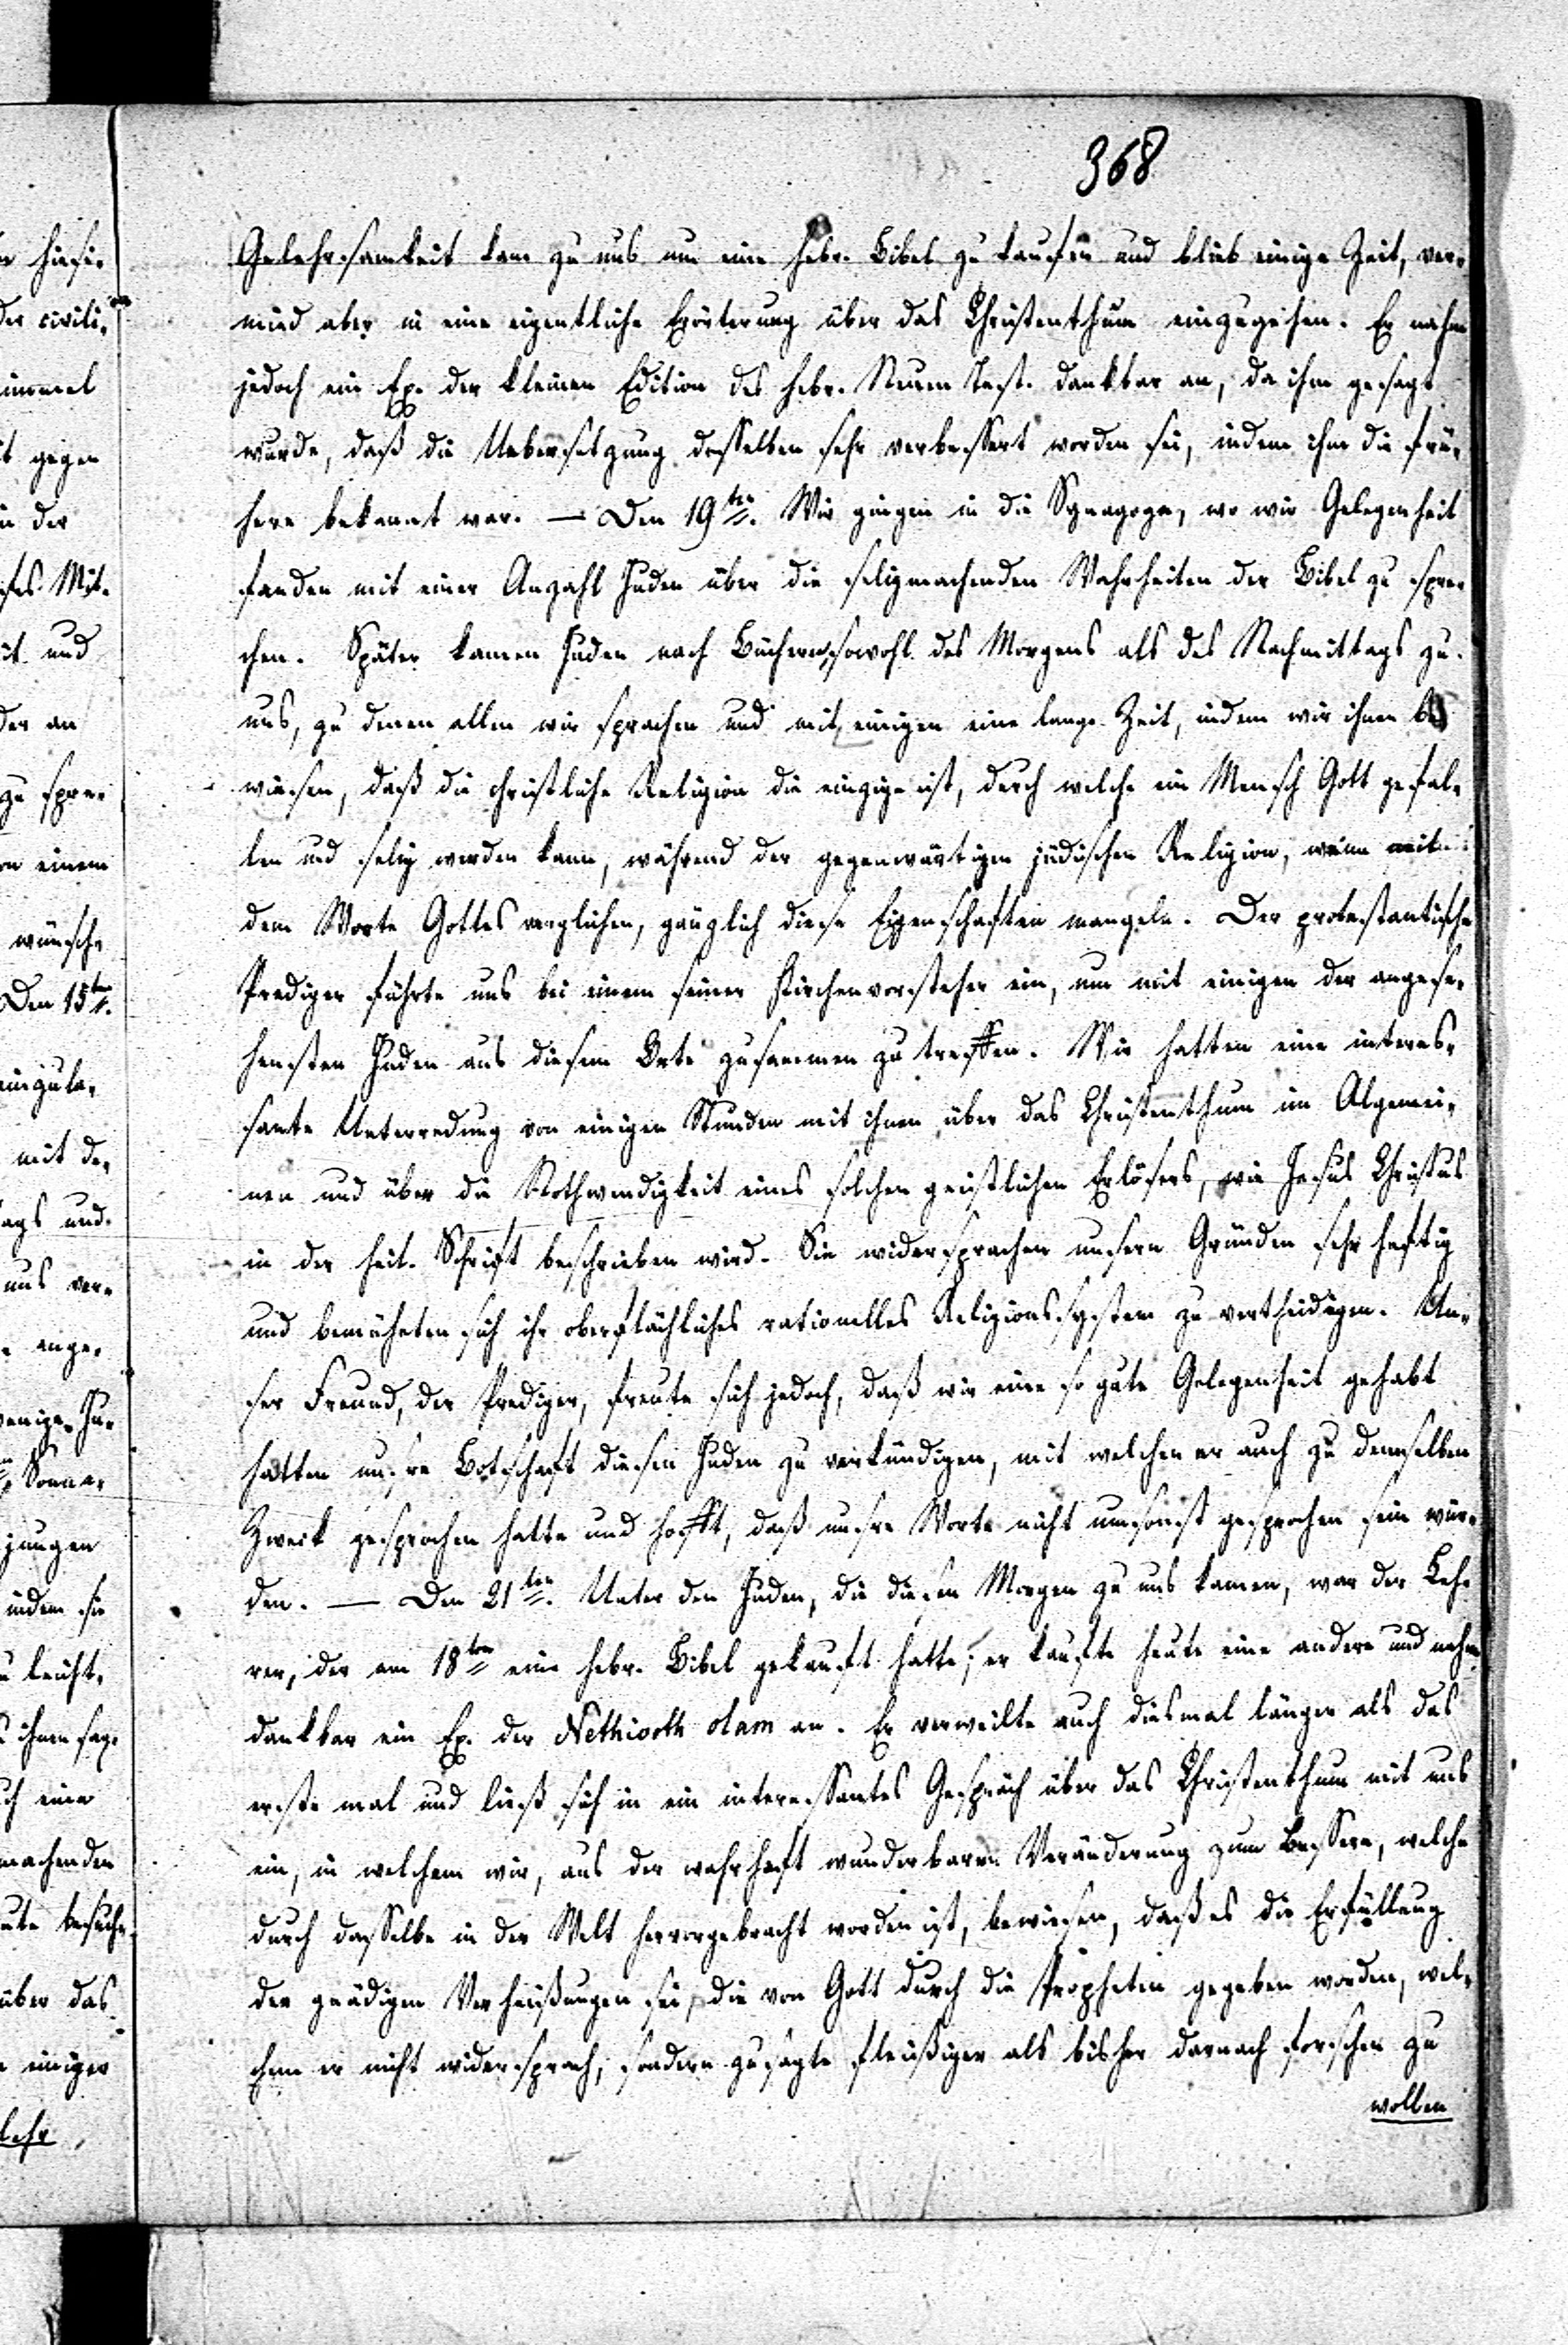 368
Gelehrsamkeit kam zu uns um eine hebr. Bibel zu kaufen und blieb einige Zeit, ver-
mied aber in eine eigentliche Erörterung über das Christenthum einzugehen. Er nahm
jedoch ein Ex. der kleinen Edition des hebr. Neuen Test. dankbar an, da ihm gesagt
wurde, daß die Uebersetzung desselben sehr verbessert worden sei, indem ihm die frü-
here bekannt war. — Den 19ten. Wir gingen in die Synagoge, wo wir Gelegenheit
fanden mit einer Anzahl Juden über die seligmachenden Wahrheiten der Bibel zu spre-
chen. Später kamen Juden nach Büchern, sowohl des Morgens als des Nachmittags zu
uns, zu denen allen wir sprachen und mit einigen eine lange Zeit, indem wir ihnen be-
wiesen, daß die christliche Religion die einzige ist, durch welche ein Mensch Gott gefal-
len und selig werden kann, während der gegenwärtigen jüdischen Religion, wenn mit
dem Worte Gottes verglichen, gänzlich diese Eigenschaften mangeln. Der protestantische
Prediger führte uns bei einem seiner Kirchenvorsteher ein, um mit einigen der angese-
hensten Juden aus diesem Orte zusammen zu treffen. Wir hatten eine interes-
sante Unterredung von einigen Stunden mit ihnen über das Christenthum im Algemei-
nen und über die Nothwendigkeit eines solchen geistlichen Erlösers, wie Jesus Christus
in der heil. Schrift beschrieben wird. Sie widersprachen unsern Gründen sehr heftig
und bemüheten sich ihr oberflächliches rationelles Religionssystem zu vertheidigen. Un-
ser Freund, der Prediger, freute sich jedoch, daß wir eine so gute Gelegenheit gehabt
hatten unsre Botschaft diesen Juden zu verkündigen, mit welchen er auch zu demselben
Zweck gesprochen hatte und hofft, daß unsre Worte nicht umsonst gesprochen sein wür-
den. — Den 21ten. Unter den Juden, die diesen Morgen zu uns kamen, war der Leh-
rer, der am 18ten eine hebr. Bibel gekauft hatte; er kaufte heute eine andere und nahm
dankbar ein Ex. der Nethiooth olam an. Er verweilte auch diesmal länger als das
erste mal und ließ sich in ein interessantes Gespräch über das Christenthum mit uns
ein, in welchem wir, aus der wahrhaft wunderbaren Veränderung zum Bessern, welche
durch dasselbe in der Welt hervorgebracht worden ist, bewiesen, daß es die Erfüllung
der gnädigen Verheißungen sei, die von Gott durch die Propheten gegeben worden, wel-
chem er nicht widersprach, sondern zusagte fleißiger als bisher darnach forschen zu
wollen
hiesi-
der civili-
einmal
gegen
in der
Mit-
und
der an
zu spre-
einem
wünsch-
Den 15ten.
einzula-
mit de-
und
uns ver-
ange-
wenige Ju-
Sonna-
jungen
indem sie
leicht-
ihnen sag-
eine
machenden
besuch-
über das
einiger
lehr